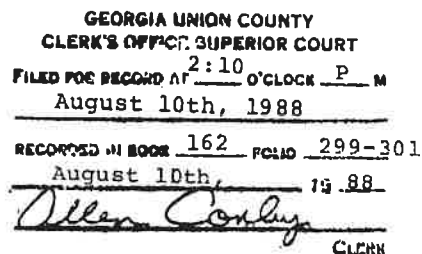 GEORGIA UNION COUNTY
CLERK'S OFFICE SUPERIOR COURT
FILED FOR RECORD AT 2:10 O'CLOCK P M
August 10th, 1988
RECORDED IN BOOK 162 FOLIO 299-301
August 10th, 19 88
Allen Conley
CLERK